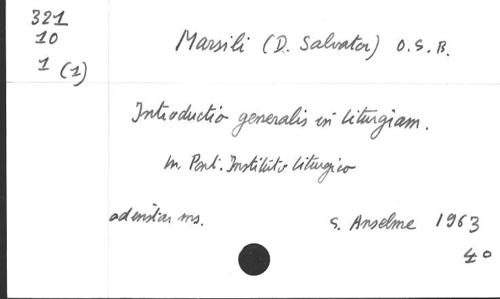 321
10
1 (1)
Marsili (D. Salvator) O.S.B.
Introductio generalis in liturgiam.
in. Pont. Instituto liturgico
ad instar ms.
S. Anselme 1963
4°